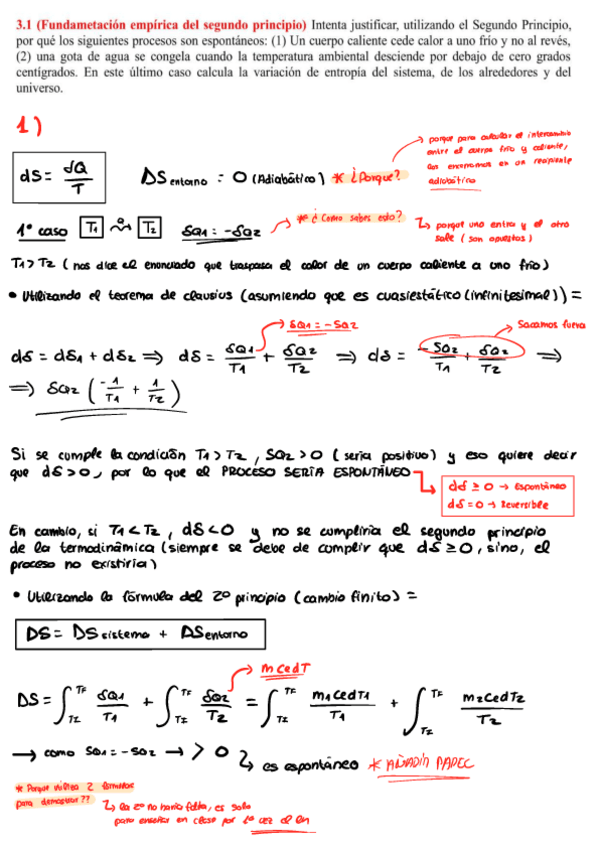 3.1 (Fundametación empírica del segundo principio) Intenta justificar, utilizando el Segundo Principio,
por qué los siguientes procesos son espontáneos: (1) Un cuerpo caliente cede calor a uno frío y no al revés,
(2) una gota de agua se congela cuando la temperatura ambiental desciende por debajo de cero grados
centígrados. En este último caso calcula la variación de entropía del sistema, de los alrededores y del
universo.
1)
porque para calcular el intercambio
entre el cuerpo frío y caliente,
los encerramos en un recipiente
adiabático
dS = δQ / T
DS entorno = 0 (Adiabático) * ¿Porque?
* ¿Como sabes esto?
porque uno entra y el otro
sale (son opuestos)
1º caso T1 T2 δQ1 = -δQ2
T1 > T2 (nos dice el enunciado que traspasa el calor de un cuerpo caliente a uno frío)
• Utilizando el teorema de clausius (asumiendo que es cuasiestático (infinitesimal)) =
δQ1 = -δQ2
Sacamos fuera
dS = dS1 + dS2 ⟹ dS = δQ1/T1 + δQ2/T2 ⟹ dS = -δQ2/T1 + δQ2/T2 ⟹
⟹ δQ2 (-1/T1 + 1/T2)
Si se cumple la condición T1 > T2, δQ2 > 0 (sería positivo) y eso quiere decir
que dS > 0, por lo que el PROCESO SERIA ESPONTÁNEO
dS ≥ 0 → Espontáneo
dS = 0 → Reversible
En cambio, si T1 < T2, dS < 0 y no se cumpliría el segundo principio
de la termodinámica (siempre se debe de cumplir que dS ≥ 0, sino, el
proceso no existiría)
• Utilizando la fórmula del 2º principio (cambio finito) =
DS = DS sistema + DS entorno
m c e dT
DS = ∫ TI TF δQ1/T1 + ∫ TI TF δQ2/T2 = ∫ TI TF m1 c e dT1/T1 + ∫ TI TF m2 c e dT2/T2
→ como δQ1 = -δQ2 → > 0 es espontáneo * AÑADIR PAPEL
* Porque utiliza 2 formulas
para demostrar??
la 2º no haría falta, es solo
para enseñar en clase por 1ª vez el